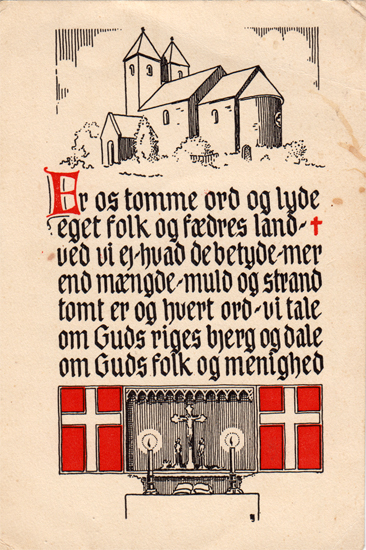 Er os tomme ord og lyde
eget folk og fædres land-
ved vi ej-hvad de betyde-mer
end mængde-muld og strand
tomt er og hvert ord-vi tale
om Guds riges bjerg og dale
om Guds folk og menighed